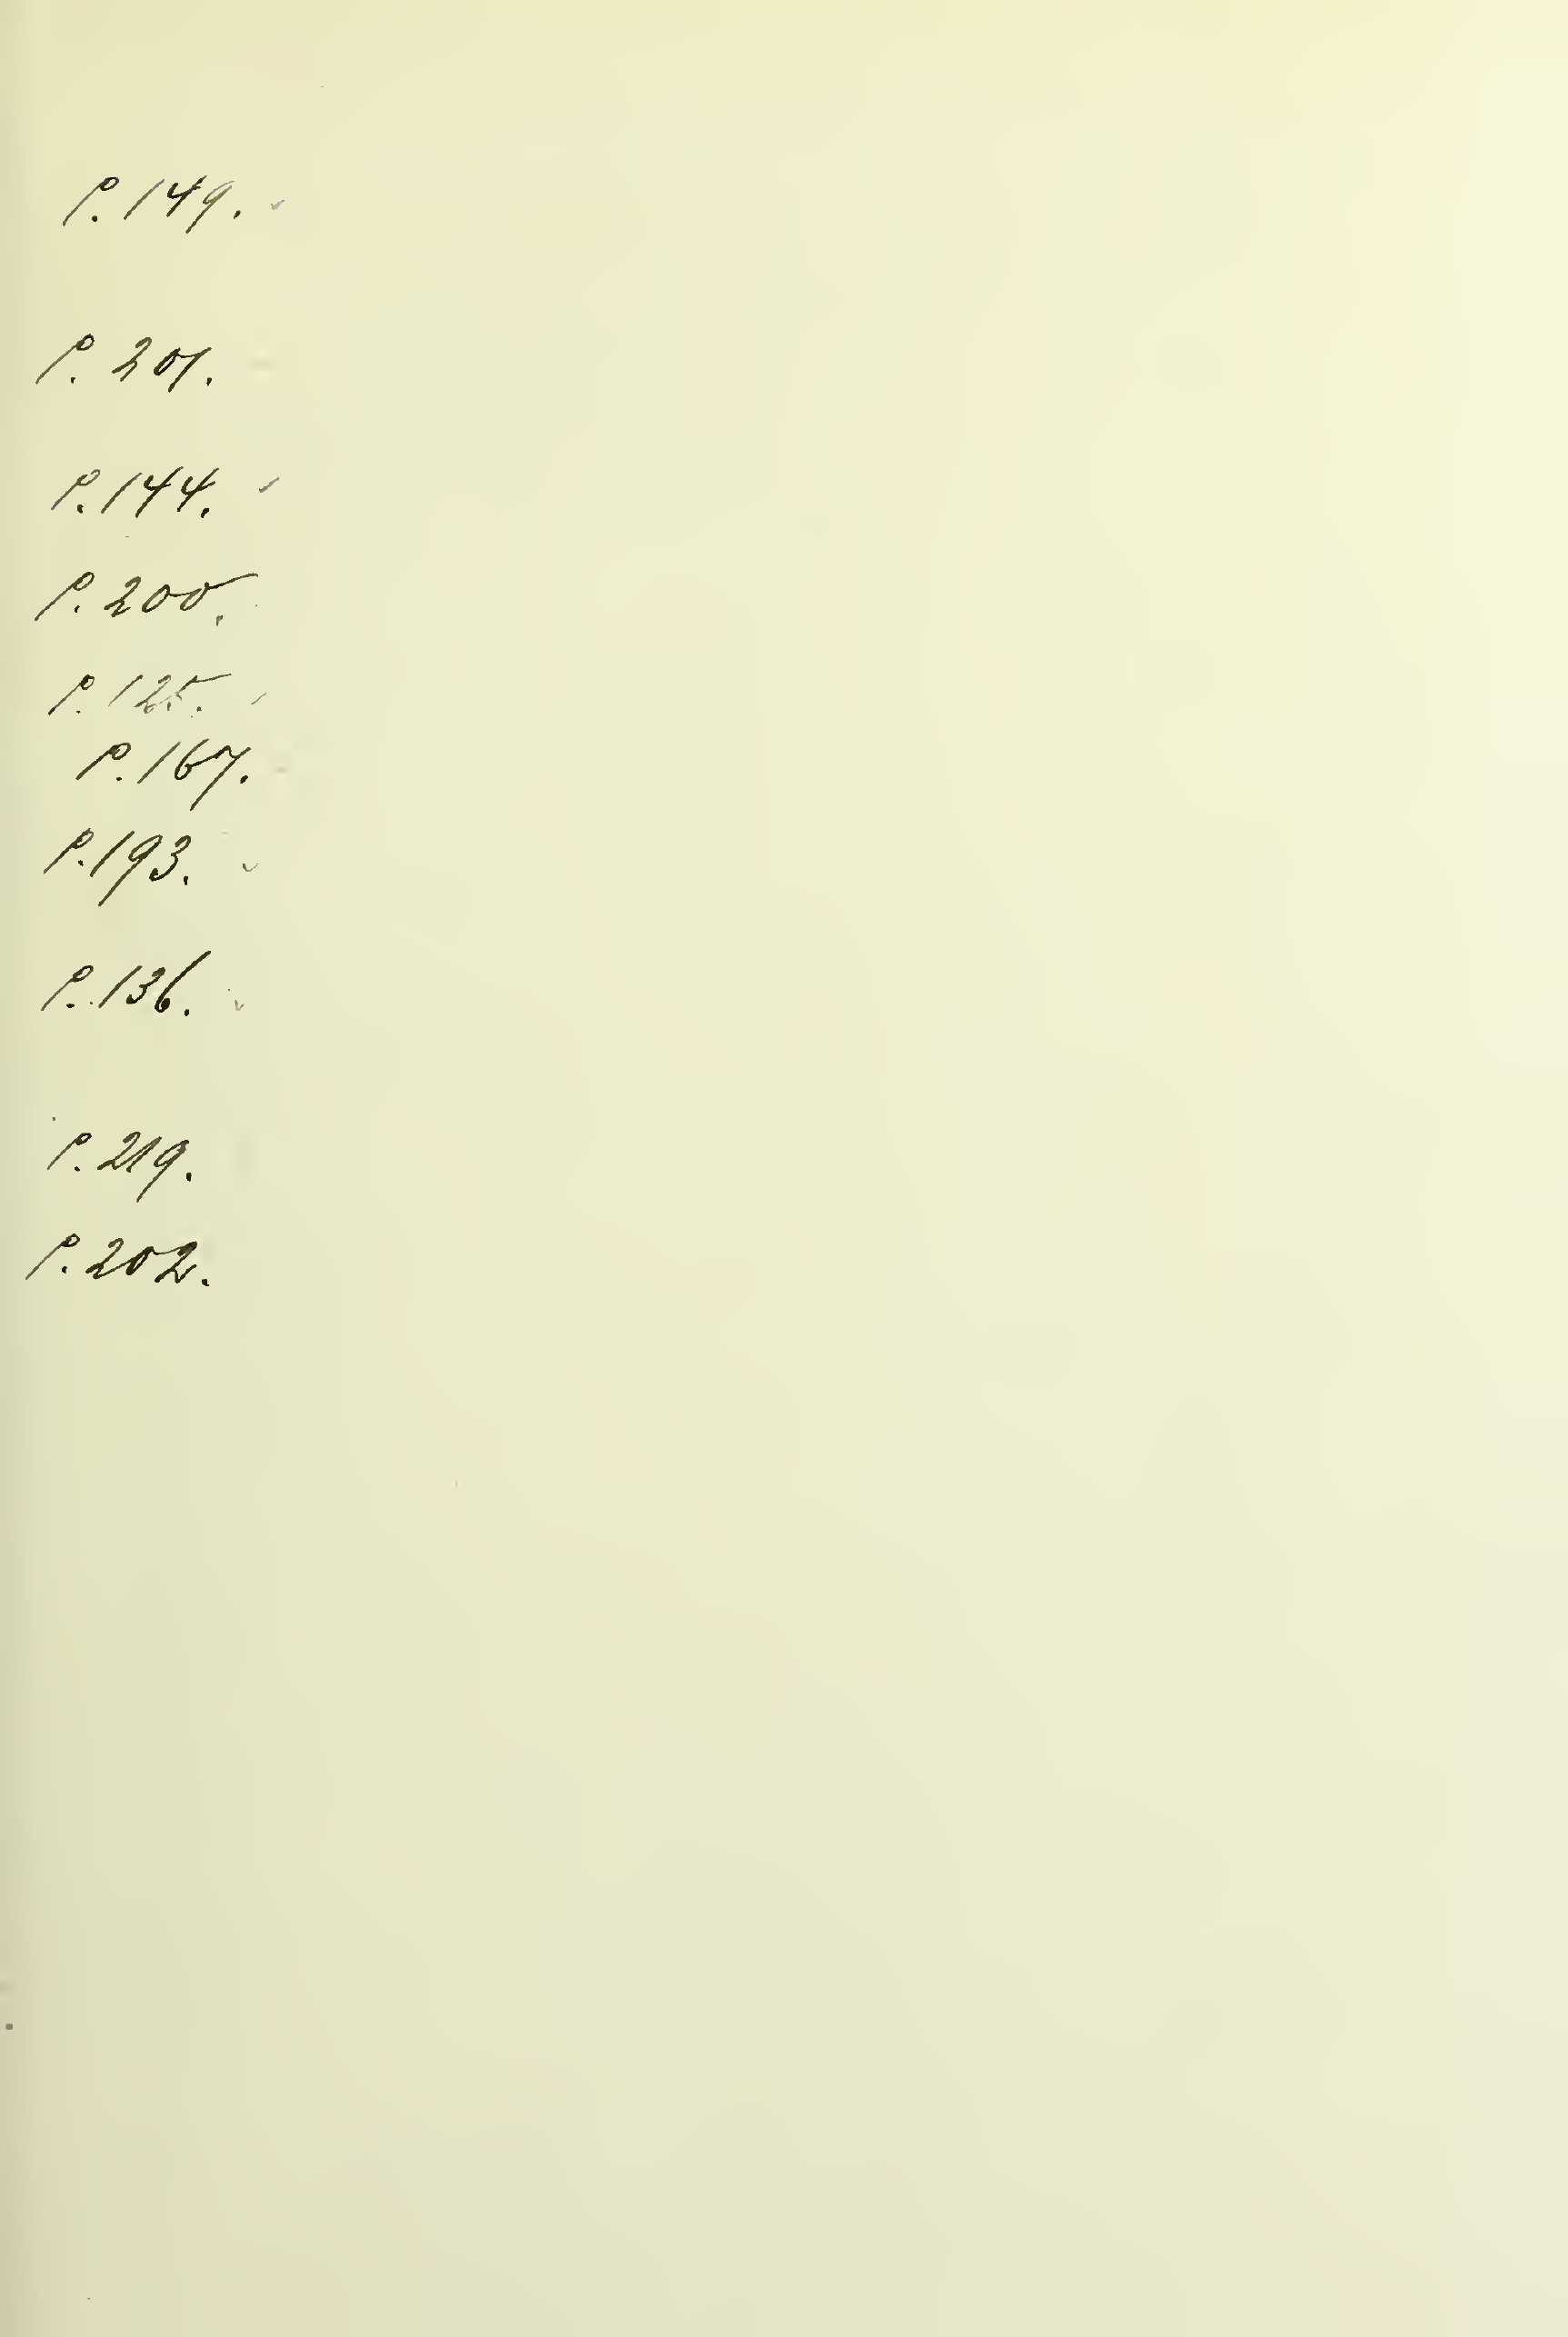 P. 149. ✓
P. 201.
P. 144. ✓
P. 200.
P. 125. ✓
P. 167.
P. 193. ✓
P. 136. ✓
P. 219.
P. 202.